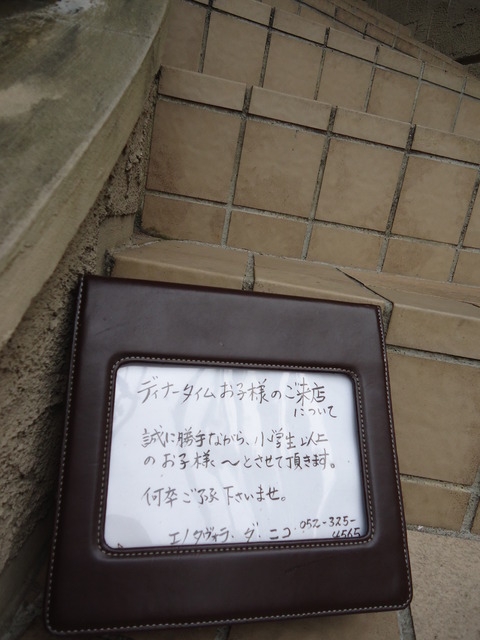 ディナータイムお子様のご来店
について
誠に勝手ながら、小学生以上
のお子様〜とさせて頂きます。
何卒ご了承下さいませ。
エノタヴォラ・ダ・ニコ 052-325-
4565